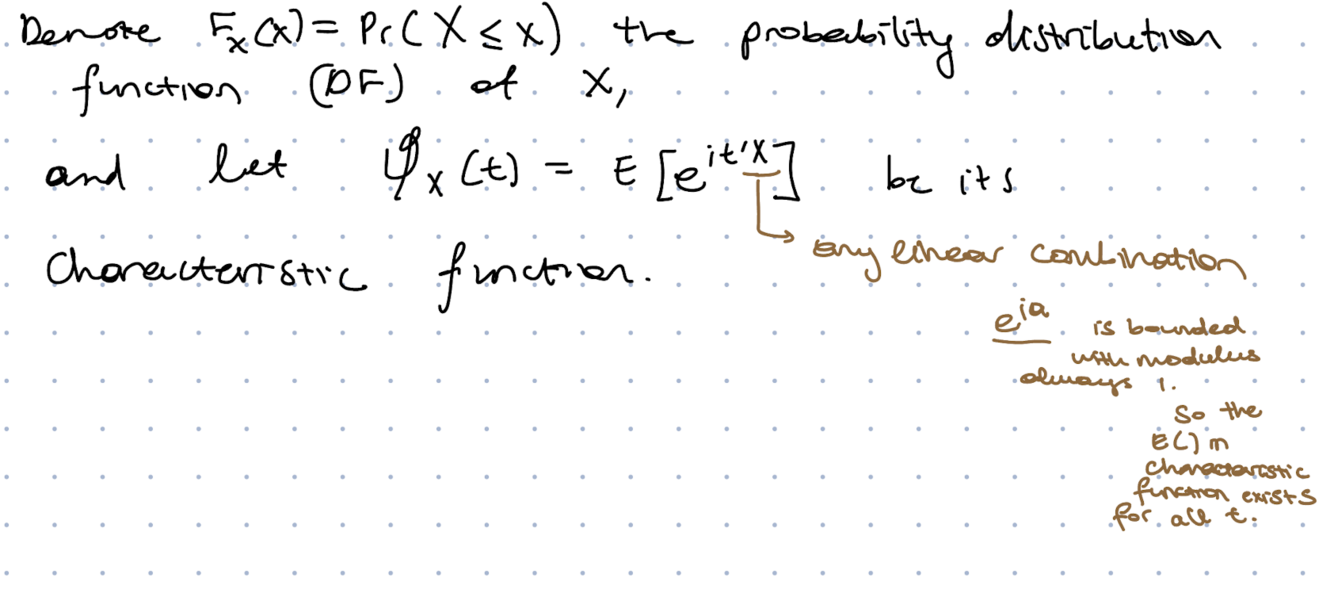 Denote F_X(x) = Pr(X ≤ x) the probability distribution
function (DF) of X,
and let φ_X(t) = E[e^{it'X}] be its
characteristic function.
any linear combination
e^{ia} is bounded
with modulus
always 1.
So the
E() in
characteristic
function exists
for all t.